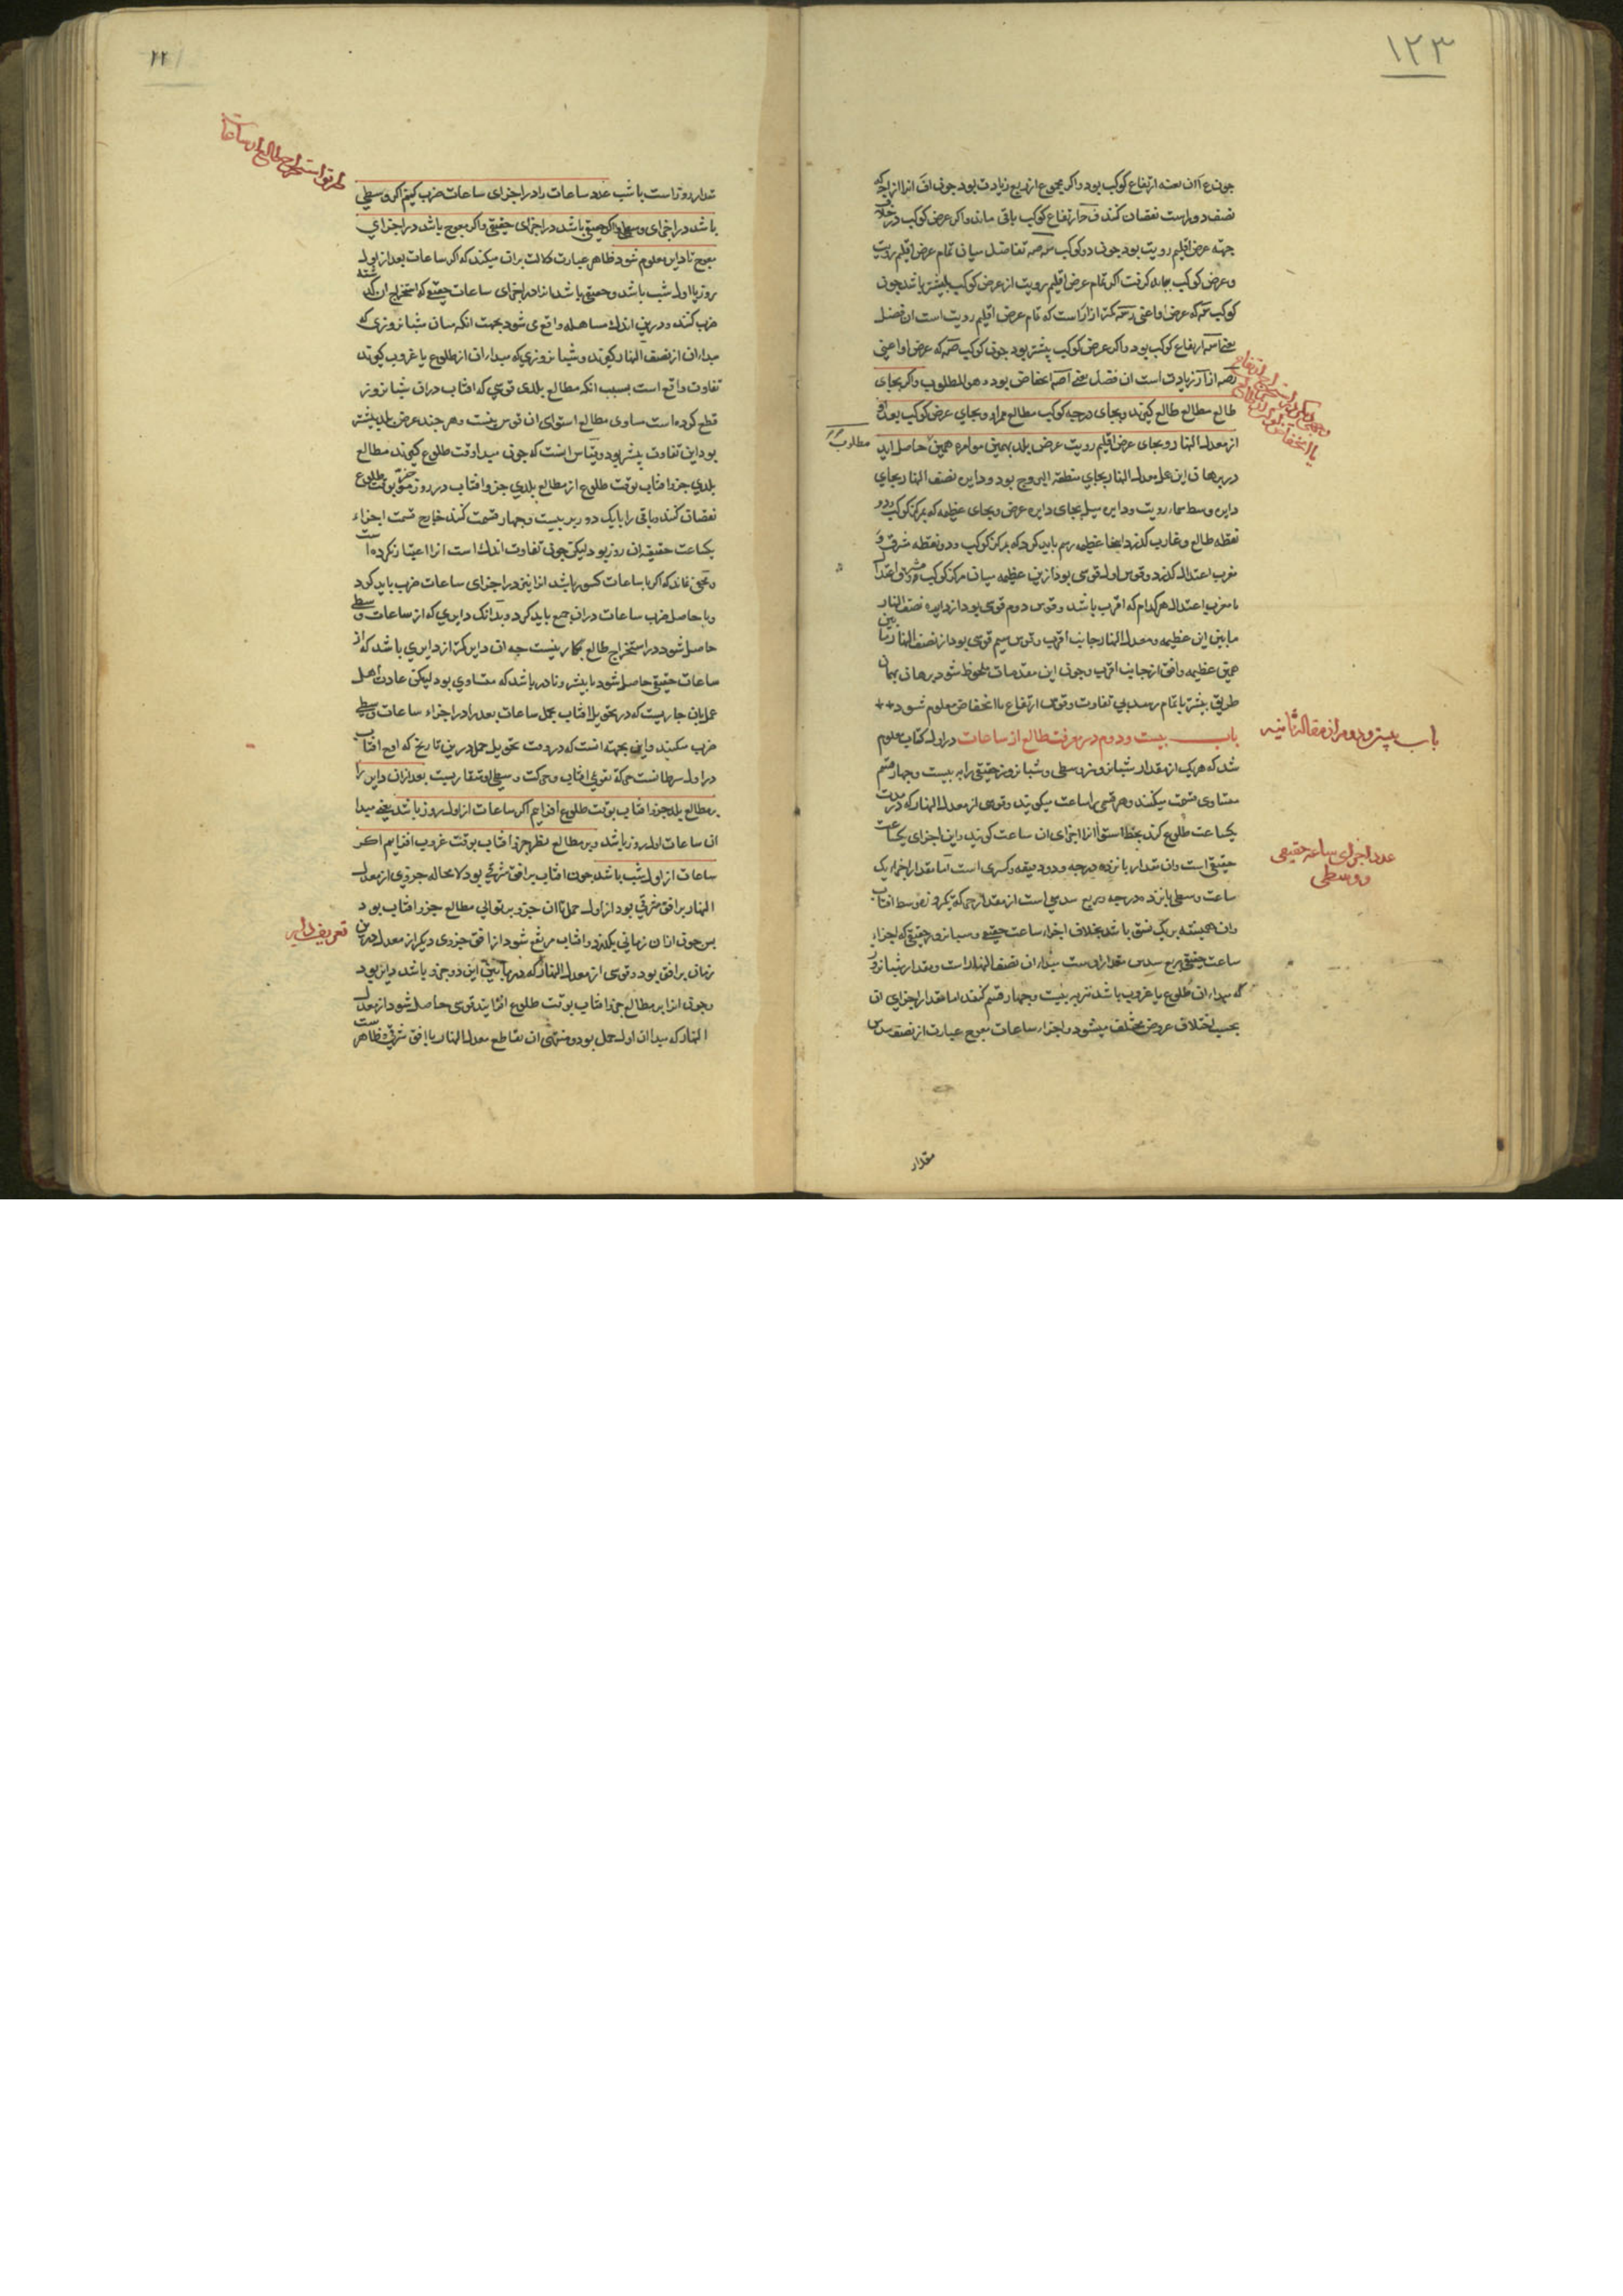 ۱۲۳
چون ع ا ان سته ارتفاع کوکب بود واکر مجموع از ربع زیادت بود چون اف انرا از آنچه که
نصف دور است نقصان کنند ف حا ارتفاع کوکب باقی ماند واکر عرض کوکب در خلاف
جهة عرض اقلیم رویت بود چون دو کوکب تفاضل میان تمام عرض اقلیم رویت
وعرض کوکب بباید کرفت اکر تمام عرض اقلیم رویت از عرض کوکب بیشتر باشد چون
کوکب که عرض او اعنی کمتر از است که تمام عرض اقلیم رویت است ان فضل
یعنی ارتفاع کوکب بود واکر عرض کوکب بیشتر بود چون کوکب که عرض او اعنی
از زیادت است ان فضل یعنی انحفاض بود وهو المطلوب واکر بجای
طالع مطالع طالع کیرند وبجای درجه کوکب مطالع ممر او وبجای عرض کوکب بعد او
از معدل النهار وبجای عرض اقلیم رویت عرض بلد بهمین موامره همین حاصل اید
مطلوب
در برهان این عمل معدل النهار بجای منطقة البروج بود ودایره نصف النهار بجای
دایره وسط سماء رویت ودایره میل بجای دایره عرض وبجای عظیمه که بمرکز کوکب ودو
نقطه طالع وغارب کذرد اینجا عظیمه رسم باید کرد که بمرکز کوکب ودو نقطه مشرق و
مغرب اعتدال کذرد وقوس اول قوسی بود ازین عظیمه میان مرکز کوکب ومشرق اعتدال
یا مغرب اعتدال هر کدام که اقرب باشد وقوس دوم قوسی بود از دایره نصف النهار
مابین این عظیمه ومعدل النهار جانب اقرب وقوس سیم قوسی بود از نصف النهار مابین
همین عظیمه وافق از جانب اقرب وچون این مقدمات ملحوظ شود برهان بهمان
طریق بیشتر باتمام رسد بی تفاوت وقوس ارتفاع یا انحفاض معلوم شود
باب بیست ودوم در معرفت طالع از ساعات در اول کتاب معلوم
باب بیست ودوم از مقاله ثانیه
شد که هر یک از مقدار شبانروز وسطی وشبانروز حقیقی را به بیست وچهار قسم
متساوی قسمت میکنند وهر قسمی را ساعت میکویند وقوسی از معدل النهار که در مدت
یکساعت طلوع کند بخط استوا انرا اجزای ان ساعت کویند واین اجزای یکساعت
عدد اجزای ساعت حقیقی
ووسطی
حقیقی است وان مقدار پانزده درجه ودو دقیقه وکسری است اما مقدار اجزاء یک
ساعت وسطی پانزده درجه وربع سدسی است از مقدار حرکت یکروزه وسط افتاب
وان همیشه بر یک نسق باشد بخلاف اجزاء ساعت حقیقی وشبانروز حقیقی که اجزاء
ساعت حقیقی ربع سدس مقدار اوست مبداء ان نصف النهار است ومقدار شبانروز
که مبداء ان طلوع یا غروب باشد نیز به بیست وچهار قسم کنند اما مقدار اجزای ان
بحسب اختلاف عروض مختلف میشود واجزاء ساعات معوج عبارت از نصف سدس
مقدار
۱۲۲
طریق استخراج طالع از ساعات
مقدار روز است یا شب عدد ساعات را در اجزای ساعات ضرب کنیم اکر وسطی
باشد در اجزای وسطی واکر حقیقی باشد در اجزای حقیقی واکر معوج باشد در اجزای
معوج تا دایر معلوم شود ظاهر عبارت دلالت بران میکند که اکر ساعات بعد از اول
روز یا اول شب باشد وحقیقی باشد انرا در اجزای ساعات حقیقی که استخراج ان کذشته
ضرب کنند ودرین اندک مساهله واقع می شود بجهت انکه میان شبانروزی که
مبداء ان از نصف النهار کیرند وشبانروزی که مبداء ان از طلوع یا غروب کیرند
تفاوت واقع است بسبب انکه مطالع بلدی قوسی که افتاب دران شبانروز
قطع کرده است مساوی مطالع استوای ان قوس نیست وهر چند عرض بلد بیشتر
بود این تفاوت بیشتر بود وقیاس انست که چون مبدا وقت طلوع کیرند مطالع
بلدی جزو افتاب بوقت طلوع از مطالع بلدی جزو افتاب در روز بوقت طلوع
نقصان کنند وباقی را با یک دور بر بیست وچهار قسمت کنند خارج قسمت اجزاء
یکساعت حقیقه ان روز بود لیکن چون تفاوت اندک است انرا اعتبار نکرده است
ومخفی نماند که اکر با ساعات کسور باشد انرا نیز در اجزای ساعات ضرب باید کرد
وبا حاصل ضرب ساعات دران جمع باید کرد وبدانک دایری که از ساعات وسطی
حاصل شود در استخراج طالع بکار نیست چه ان دایر کمتر از دایری باشد که از
ساعات حقیقی حاصل شود یا بیشتر ونادر باشد که متساوی بود لیکن عادت اهل
عمل بان جاریست که در تحویل افتاب بحمل ساعات بعد را در اجزاء ساعات وسطی
ضرب میکنند واین بجهته انست که در وقت تحویل حمل درین تاریخ که اوج افتاب
در اول سرطانست حرکت تقویمی افتاب وحرکت وسطی او متقاربست بعد ازان دایر را
بر مطالع بلد جزو افتاب بوقت طلوع افزاییم اکر ساعات از اول روز باشد یعنی مبدا
ان ساعات اول روز باشد وبر مطالع نظیر جزو افتاب بوقت غروب افزاییم اکر
ساعات از اول شب باشد چون افتاب بر افق شرقی بود لا محاله جزوی از معدل
النهار بر افق شرقی بود از اول حمل تا ان جزو بر توالی مطالع جزو افتاب بود
پس چون از ان زمانی بکذرد وافتاب مرتفع شود از افق جزوی دیکر از معدل درین
تعریف دایر
زمان بر افق بود وقوسی از معدل النهار که در مابین این دو جزو باشد دایر بود
وچون انرا بر مطالع جزو افتاب بوقت طلوع افزایند قوسی حاصل شود از معدل
النهار که مبداء ان اول حمل بود ومنتهی ان تقاطع معدل النهار با افق شرقی وظاهر است